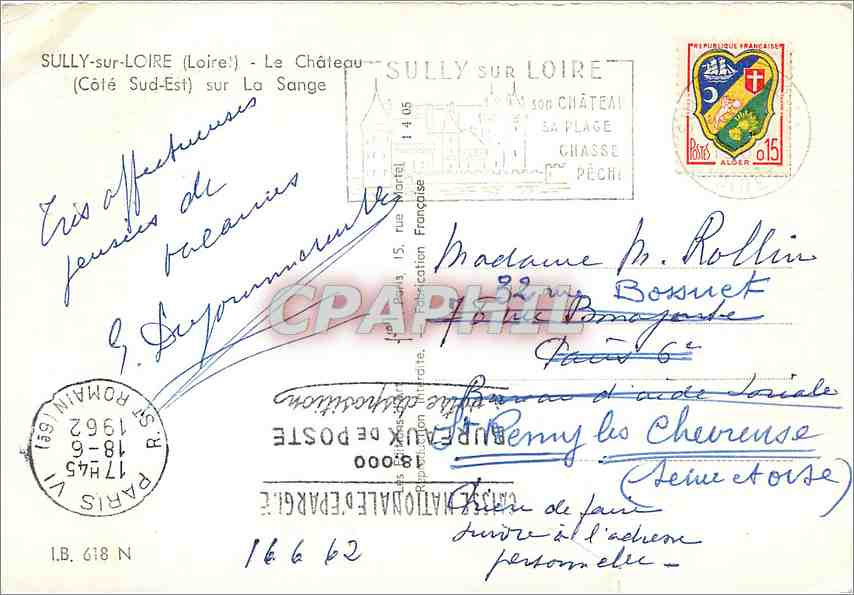 SULLY-sur-LOIRE (Loiret) - Le Château
(Côté Sud-Est) sur La Sange
SULLY SUR LOIRE
SON CHÂTEAU
SA PLAGE
CHASSE
PÊCHE
REPUBLIQUE FRANÇAISE
POSTES 0,15
ALGER
Très affectueuses
pensées de
vacances
16 6 62
Madame M. Rollin
32 rue Bossuet
76 rue Bonaparte
Paris 6e
Bureau d'aide sociale
St Remy les Chevreuse
(Seine et oise)
Prière de faire
suivre à l'adresse
personnelle -
1 4 05
15, rue Martel
Reproduction Interdite. - Fabrication Française
CPAPHIL
CAISSE NATIONALE D'EPARGNE
18.000
BUREAUX DE POSTE
votre disposition
PARIS VI
17H45
18-6
1962
R. ST ROMAIN (6e)
I.B. 618 N